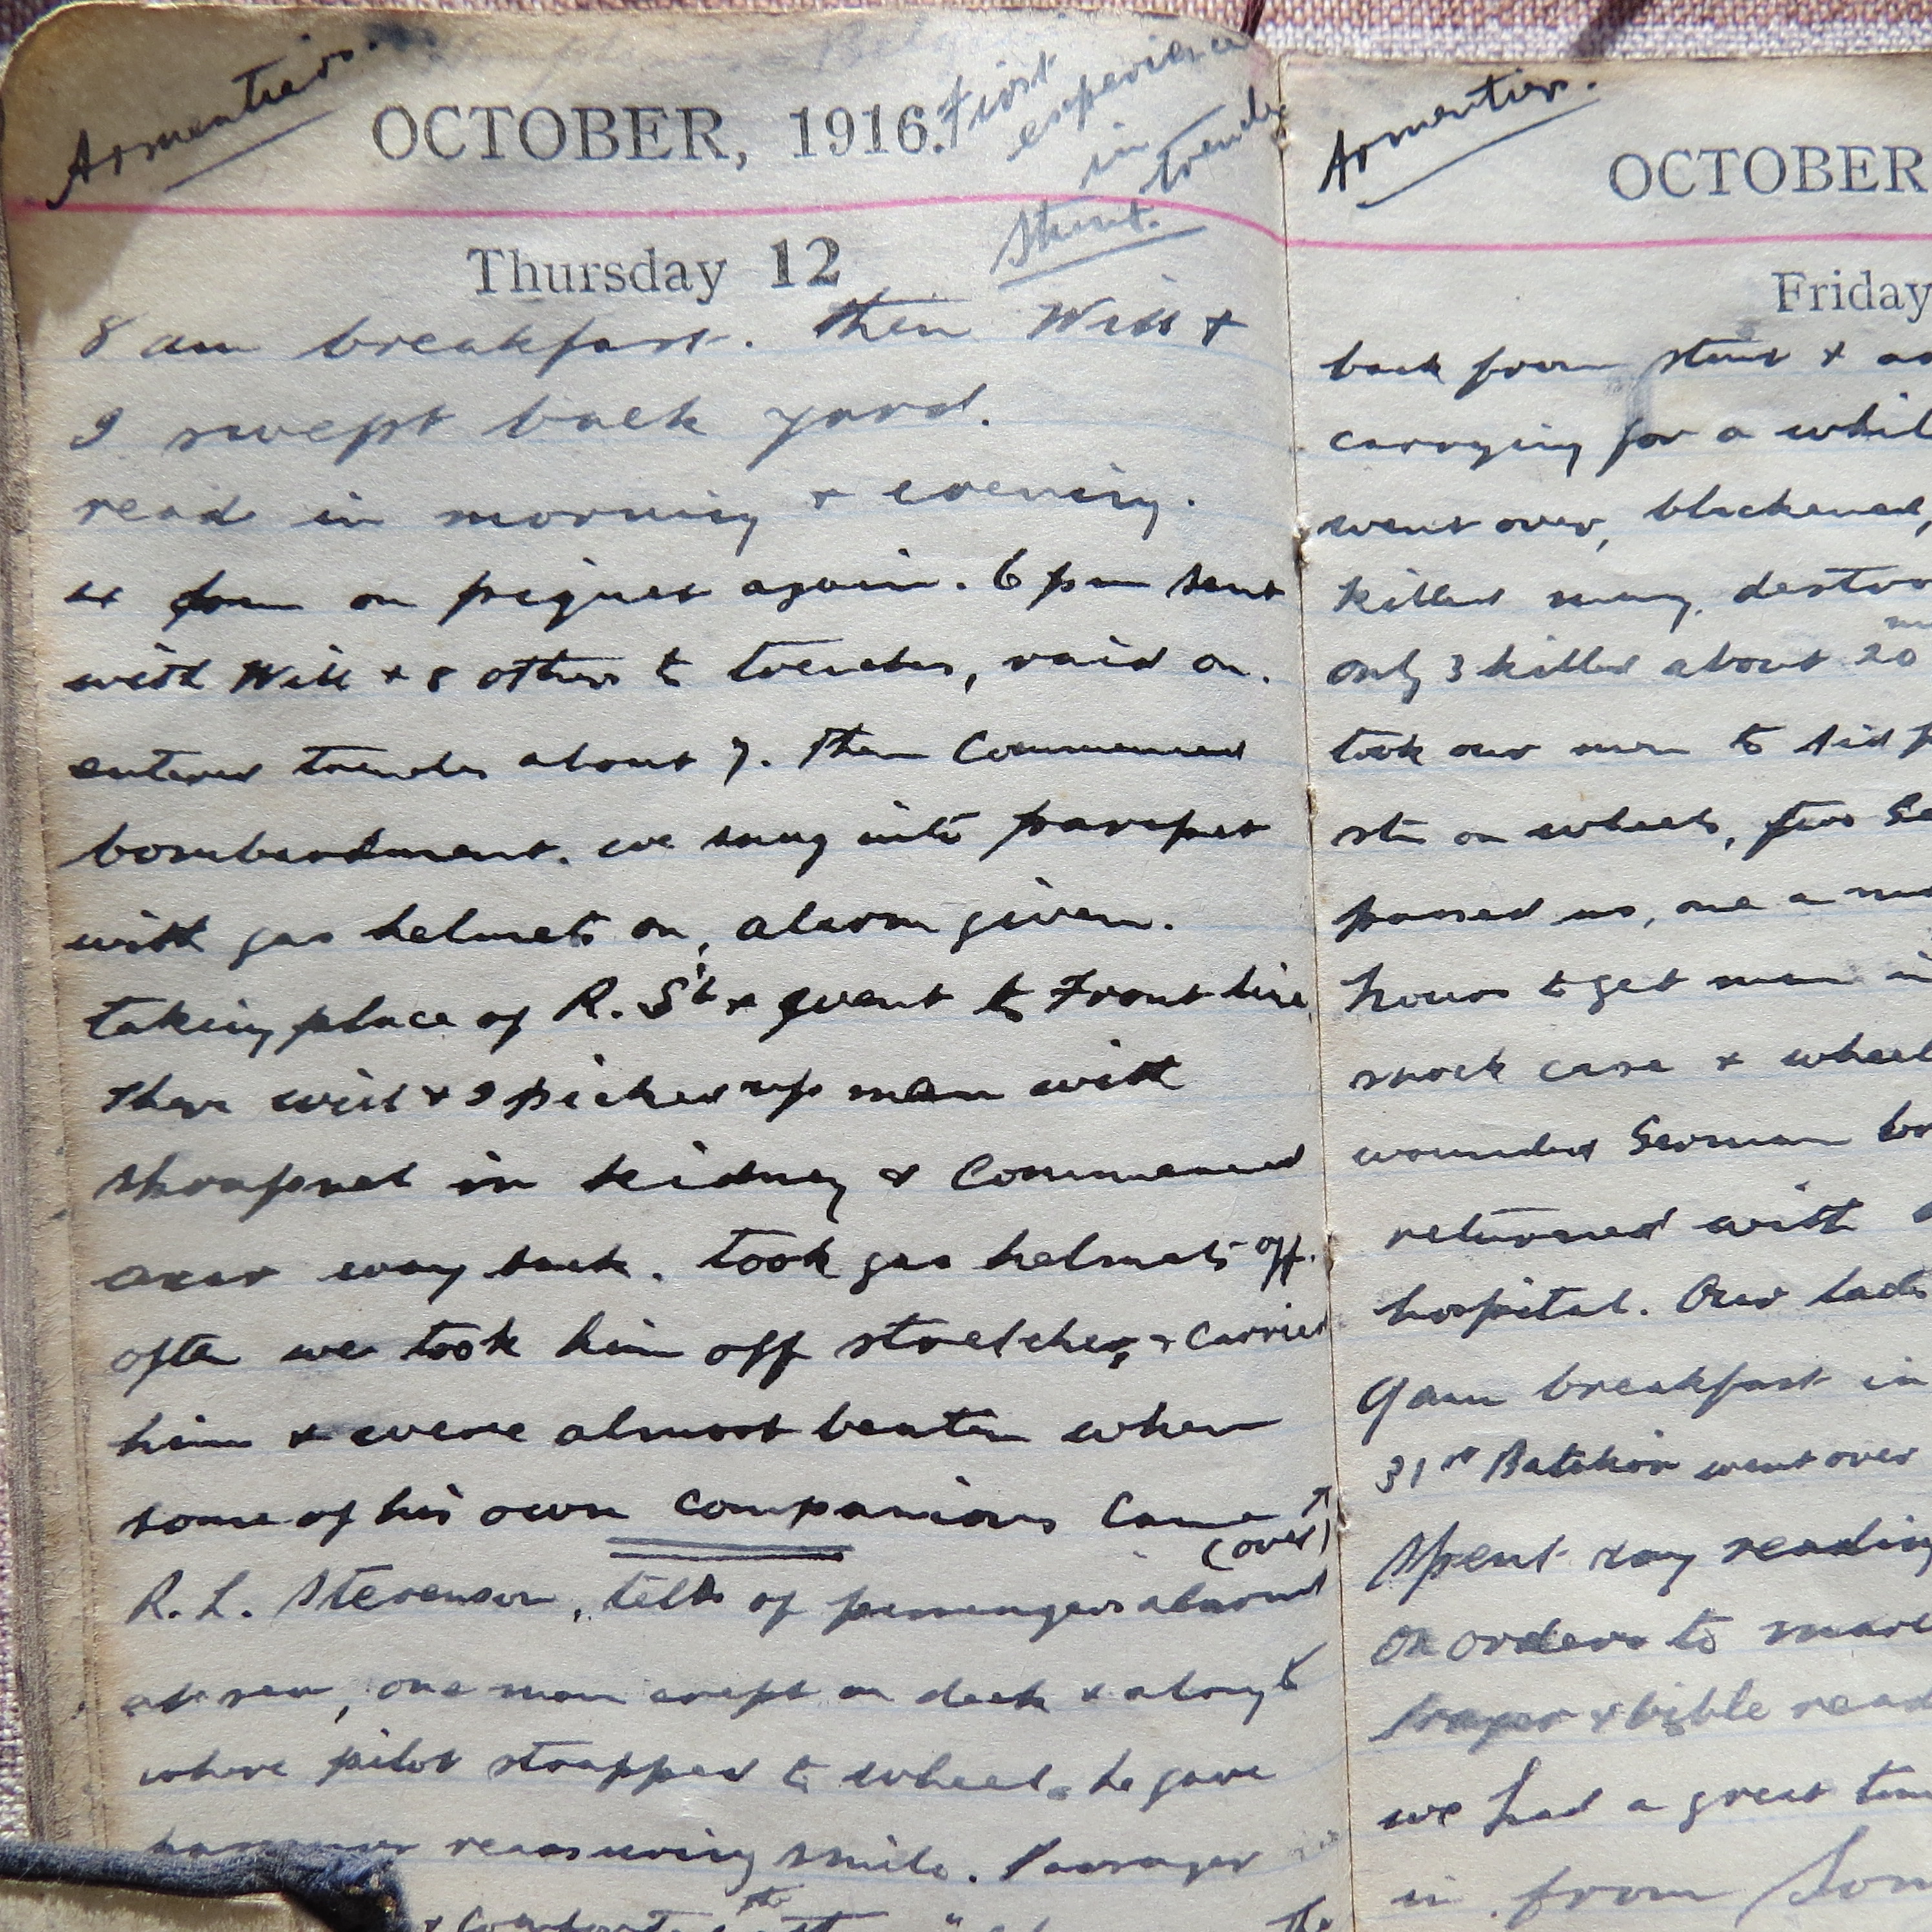 Armentiers.
OCTOBER, 1916.
First
experience
in
trenches
stunt.
Thursday 12
8 am breakfast. Then Will +
I swept back yard.
read in morning + evening.
on piquet again. 6 pm sent
with Will + 8 others to trenches, raid on.
entered trenches about 7. Then Commenced
bombardment. we snug into parapet
with gas helmets on, alarm given.
taking place of R. S'b + went to Front line,
there Will + I picked up man with
shrapnel in kidney & Commenced
our way back. took gas helmets off.
after we took him off stretcher, + Carried
him + were almost beaten when
some of his own companions Came
(over)
R. L. Stevenson, tells of passengers aboard
at sea, one man crept on deck + along to
where pilot strapped to wheel. he gave
reassuring smile. Passenger
Armentiers.
OCTOBER
Friday
back from stunt +
carrying for a whil
went over, blackened,
killed many, destro
only 3 killed about 20
took our men to Aid P
on wheels, two Ge
passed us, one a
hours to get man in
shock case + wheel
wounded German
returned with
hospital. Our lads
9 am breakfast in
31st Batalion went over
Spent day reading
on orders to
Prayer + bible read
we had a great
in from Som